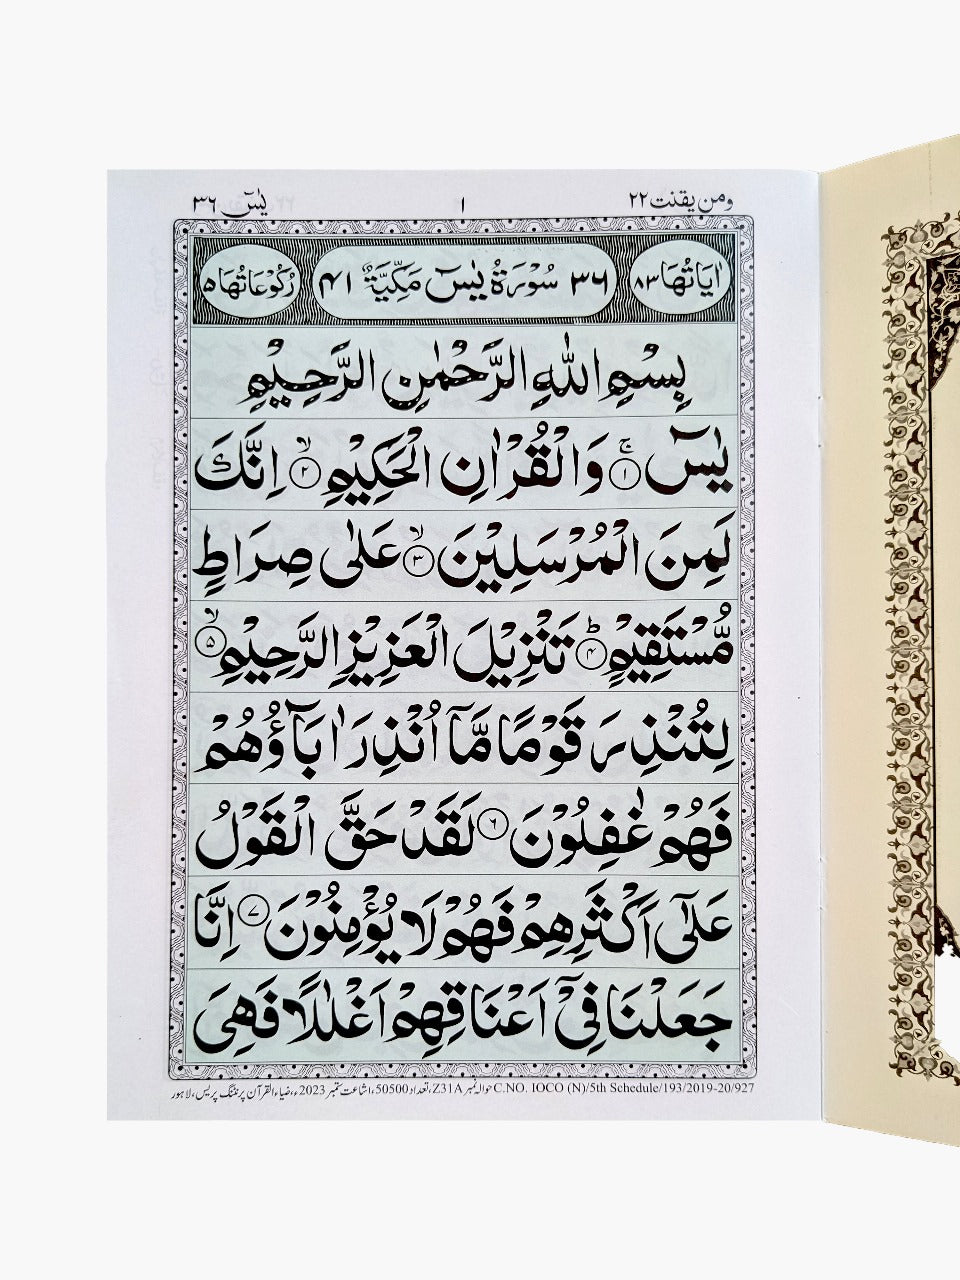 ومن یقنت ۲۲
۱
یٰسٓ ۳۶
اٰیَاتُهَا ۸۳
۳۶ سُوْرَةُ یٰسٓ مَكِّیَّةٌ ۴۱
رُكُوْعَاتُهَا ۵
بِسْمِ اللّٰهِ الرَّحْمٰنِ الرَّحِیْمِ
یٰسٓ ۚ﴿۱﴾ وَالْقُرْاٰنِ الْحَكِیْمِ ۙ﴿۲﴾ اِنَّكَ
لَمِنَ الْمُرْسَلِیْنَ ۙ﴿۳﴾ عَلٰى صِرَاطٍ
مُّسْتَقِیْمٍ ؕ﴿۴﴾ تَنْزِیْلَ الْعَزِیْزِ الرَّحِیْمِ ۙ﴿۵﴾
لِتُنْذِرَ قَوْمًا مَّاۤ اُنْذِرَ اٰبَآؤُهُمْ
فَهُمْ غٰفِلُوْنَ ﴿۶﴾ لَقَدْ حَقَّ الْقَوْلُ
عَلٰۤى اَكْثَرِهِمْ فَهُمْ لَا یُؤْمِنُوْنَ ﴿۷﴾ اِنَّا
جَعَلْنَا فِیْۤ اَعْنَاقِهِمْ اَغْلٰلًا فَهِیَ
C.NO. IOCO (N)/5th Schedule/193/2019-20/927 حوالہ نمبر Z31A، تعداد 50500، اشاعت ستمبر 2023ء، ضیاء القرآن پرنٹنگ پریس، لاہور